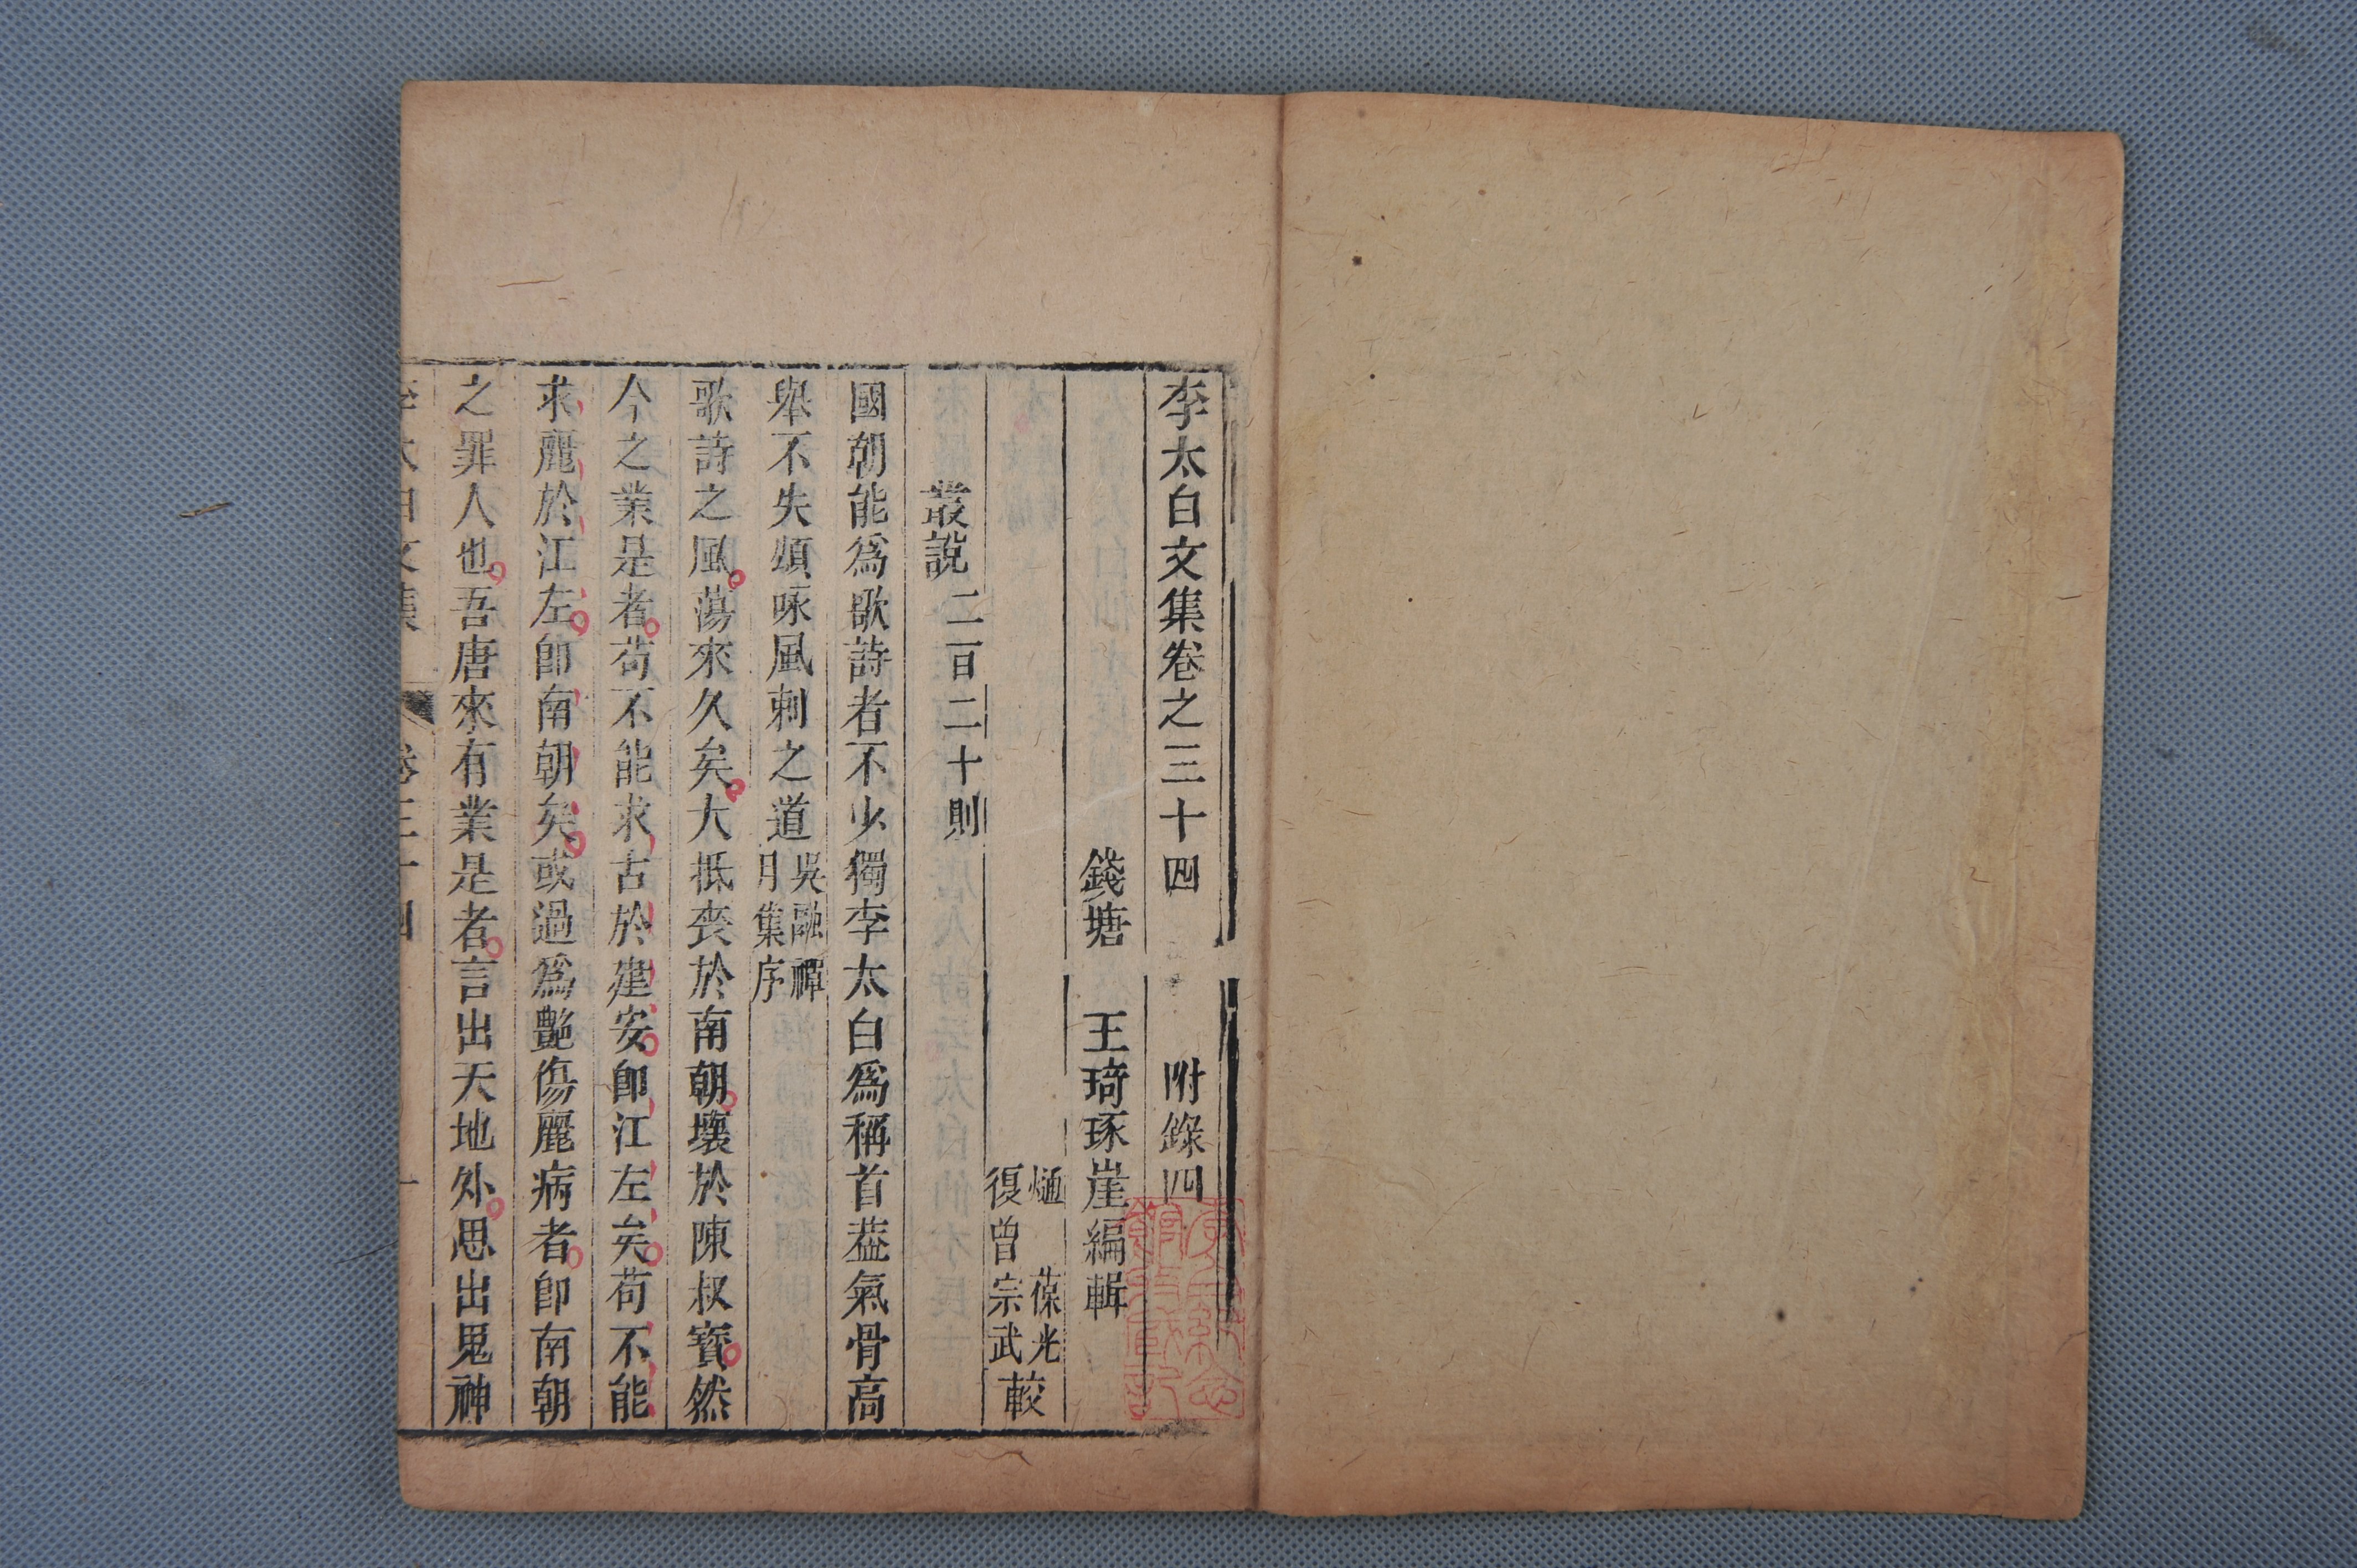 李太白文集卷之三十四　附錄四
錢塘　王琦琢崖編輯
㷆　葆光
復曾宗武較
叢說 二百二十則
國朝能爲歌詩者不少獨李太白爲稱首葢氣骨高
舉不失頌咏風刺之道 吳融禪
月集序
歌詩之風蕩來久矣大抵喪於南朝壞於陳叔寳然
今之業是者苟不能求古於建安卽江左矣苟不能
求麗於江左卽南朝矣或過爲艶傷麗病者卽南朝
之罪人也吾唐來有業是者言出天地外思出鬼神
李太白文集　卷三十四　一